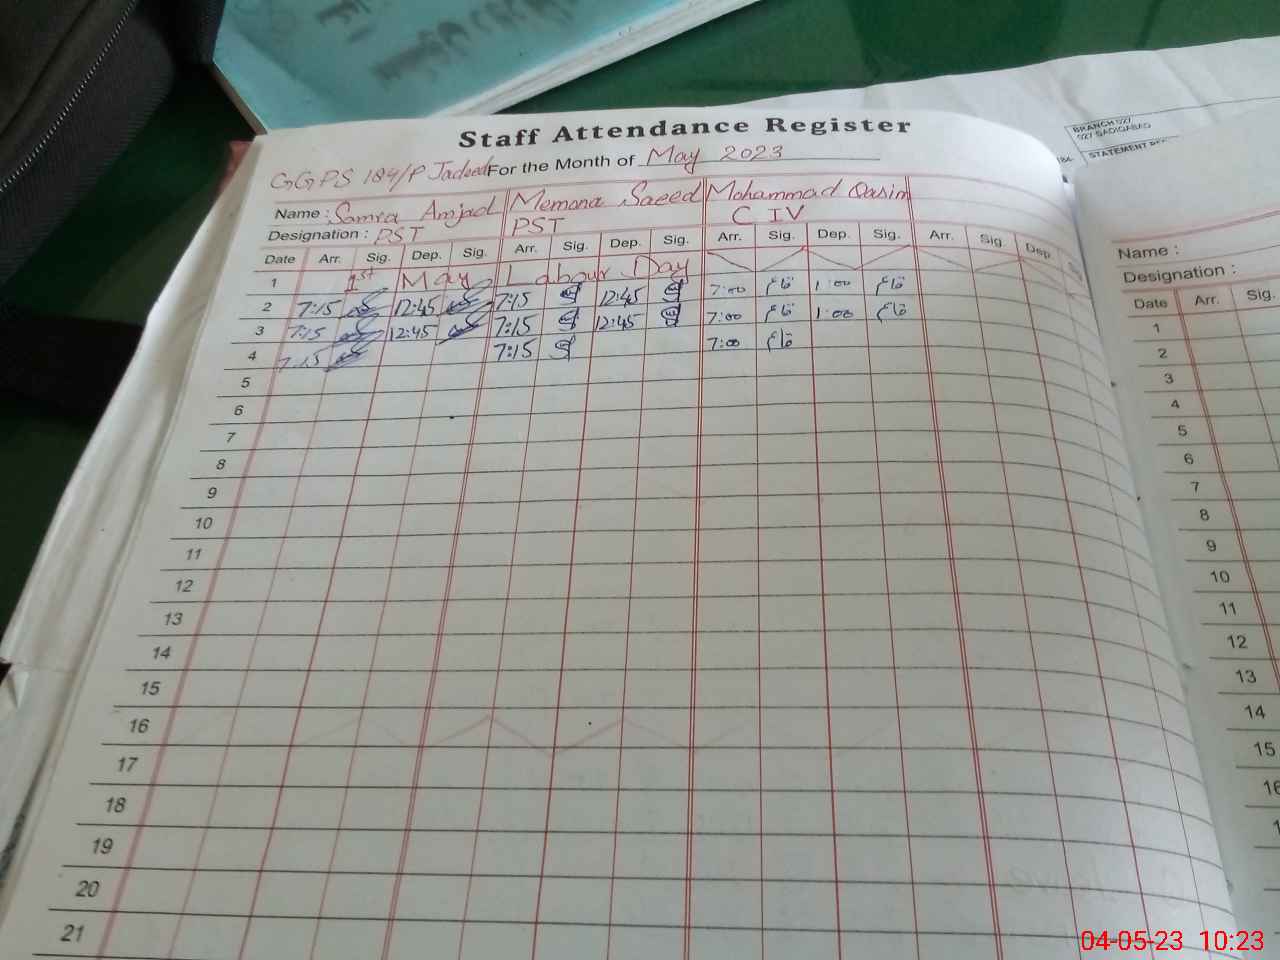 BRANCH 027
027 SADIQABAD
STATEMENT
Staff Attendance Register
GGPS 189/P Jadeed For the Month of May 2023
Name : Samra Amjad Memona Saeed Mohammad Qasim
Designation : PST PST C IV
Date Arr. Sig. Dep. Sig. Arr. Sig. Dep. Sig. Arr. Sig. Dep. Sig. Arr. Sig. Dep.
1 1st May Labour Day
2 7:15 12:45 7:15 12:45 7:00 1:00
3 7:15 12:45 7:15 12:45 7:00 1:00
4 7:15 7:15 7:00
5
6
7
8
9
10
11
12
13
14
15
16
17
18
19
20
21
Name :
Designation :
Date Arr. Sig.
1
2
3
4
5
6
7
8
9
10
11
12
13
14
15
16
04-05-23 10:23